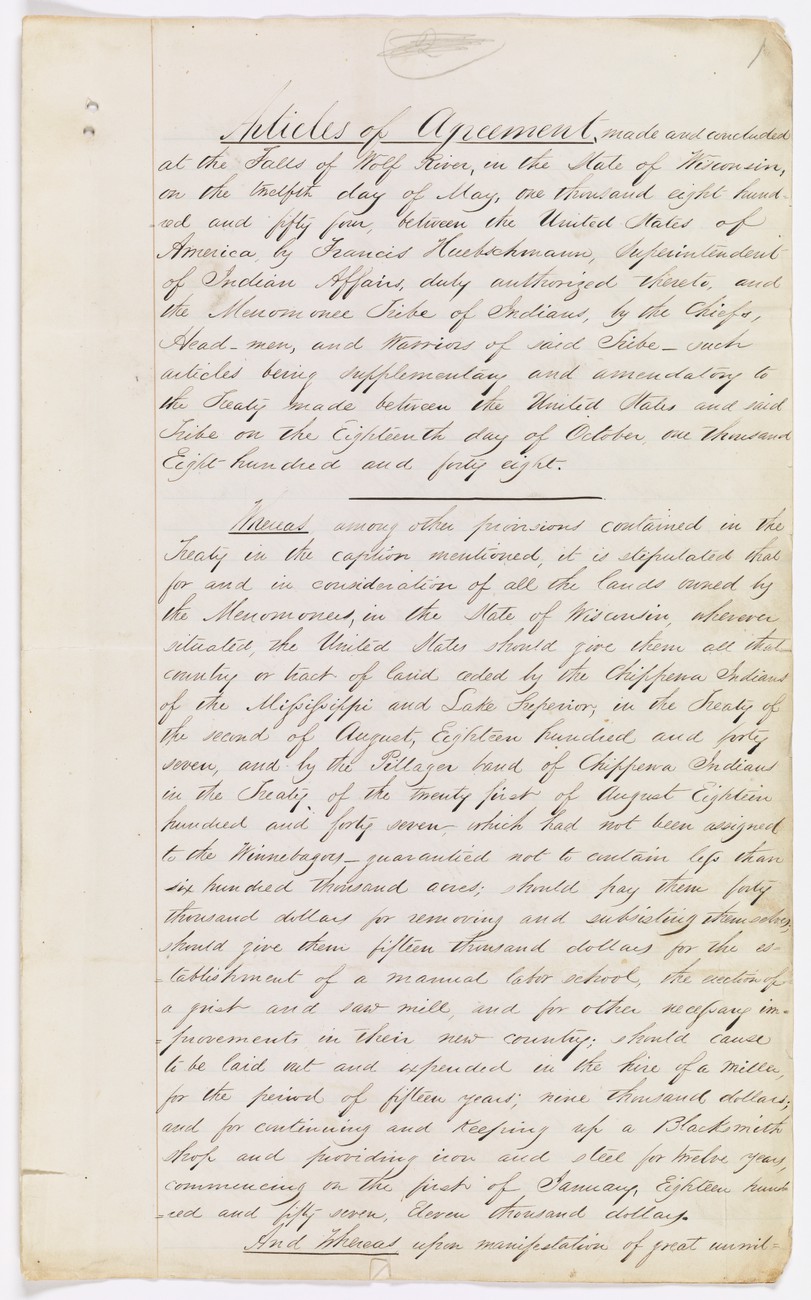 Articles of Agreement, made and concluded
at the Falls of Wolf River, in the State of Wisconsin,
on the twelfth day of May, one thousand eight hund-
-red and fifty four, between the United States of
America, by Francis Huebschmann, Superintendent
of Indian Affairs, duly authorized thereto, and
the Menomonee Tribe of Indians, by the Chiefs,
Head-men, and Warriors of said Tribe - such
articles being supplementary and amendatory to
the Treaty made between the United States and said
Tribe on the Eighteenth day of October, one thousand
Eight hundred and forty eight.
Whereas among other provisions contained in the
Treaty in the caption mentioned, it is stipulated that
for and in consideration of all the lands owned by
the Menomonees, in the State of Wisconsin, wherever
situated, the United States should give them all that
country or tract of land ceded by the Chippewa Indians
of the Mississippi and Lake Superior, in the Treaty of
the second of August, Eighteen hundred and forty
seven, and by the Pillager band of Chippewa Indians
in the Treaty of the twenty first of August Eighteen
hundred and forty seven, which had not been assigned
to the Winnebagoes - guarantied not to contain less than
six hundred thousand acres; should pay them forty
thousand dollars for removing and subsisting themselves;
should give them fifteen thousand dollars for the es=
=tablishment of a manual labor school, the erection of
a grist and saw mill, and for other necessary im=
=provements in their new country; should cause
to be laid out and expended in the hire of a miller,
for the period of fifteen years, nine thousand dollars;
and for continuing and keeping up a Blacksmith
shop and providing iron and steel for twelve years,
commencing on the first of January, Eighteen hund
=red and fifty seven, Eleven thousand dollars.
And Whereas upon manifestation of great unwil=